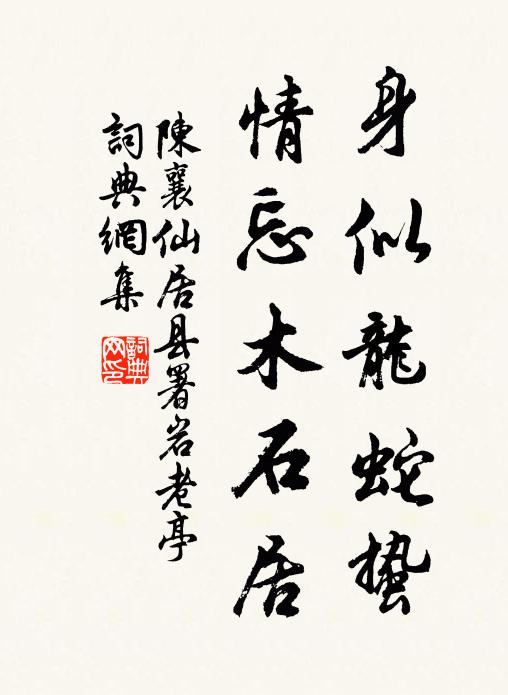 身似龍蛇蟄
情忘木石居
陳襄仙居县署岩老亭
詞典網集
詞典网印